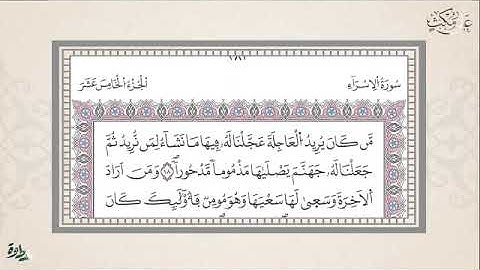 عَلَىٰ مُكْثٍ
١٨١
سُورَةُ الْإِسْرَاءِ
الْجُزْءُ الْخَامِسَ عَشَرَ
مَّن كَانَ يُرِيدُ الْعَاجِلَةَ عَجَّلْنَا لَهُ فِيهَا مَا نَشَاءُ لِمَن نُّرِيدُ ثُمَّ
جَعَلْنَا لَهُ جَهَنَّمَ يَصْلَاهَا مَذْمُومًا مَّدْحُورًا ۝١٨ وَمَنْ أَرَادَ
الْآخِرَةَ وَسَعَىٰ لَهَا سَعْيَهَا وَهُوَ مُؤْمِنٌ فَأُولَٰئِكَ كَانَ